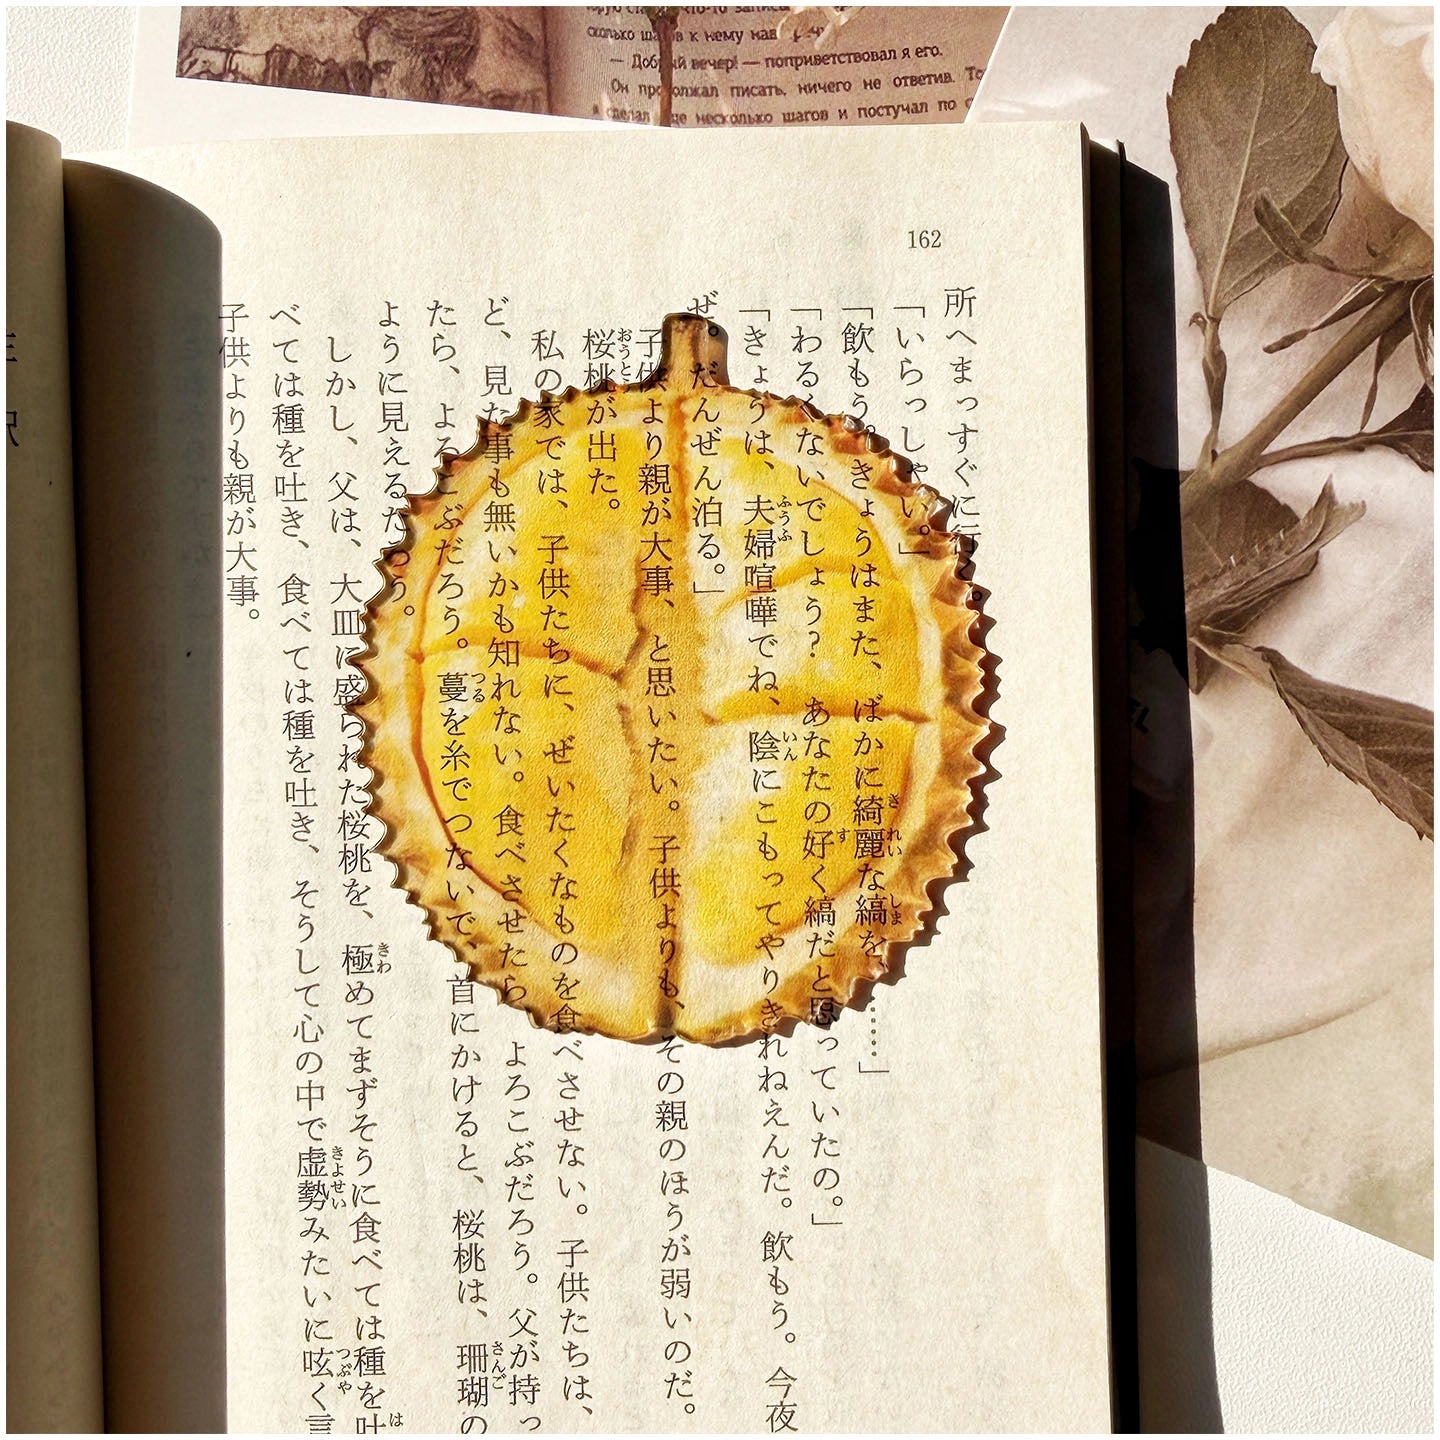 что-то
сколько шагов к нему нав
— Добрый вечер! — поприветствовал я его.
Он продолжал писать, ничего не ответив. То
сделал еще несколько шагов и постучал по с
162
所へまっすぐに行く。
「いらっしゃい。」
「飲もう。きょうはまた、ばかに綺麗な縞を、……」
「わるくないでしょう? あなたの好く縞だと思っていたの。」
「きょうは、夫婦喧嘩でね、陰にこもってやりきれねえんだ。飲もう。今夜
ぜ。だんぜん泊る。」
子供より親が大事、と思いたい。子供よりも、その親のほうが弱いのだ。
桜桃が出た。
私の家では、子供たちに、ぜいたくなものを食べさせない。子供たちは、
ど、見た事も無いかも知れない。食べさせたら、よろこぶだろう。父が持っ
たら、よろこぶだろう。蔓を糸でつないで、首にかけると、桜桃は、珊瑚の
ように見えるだろう。
しかし、父は、大皿に盛られた桜桃を、極めてまずそうに食べては種を吐
べては種を吐き、食べては種を吐き、そうして心の中で虚勢みたいに呟く言
子供よりも親が大事。